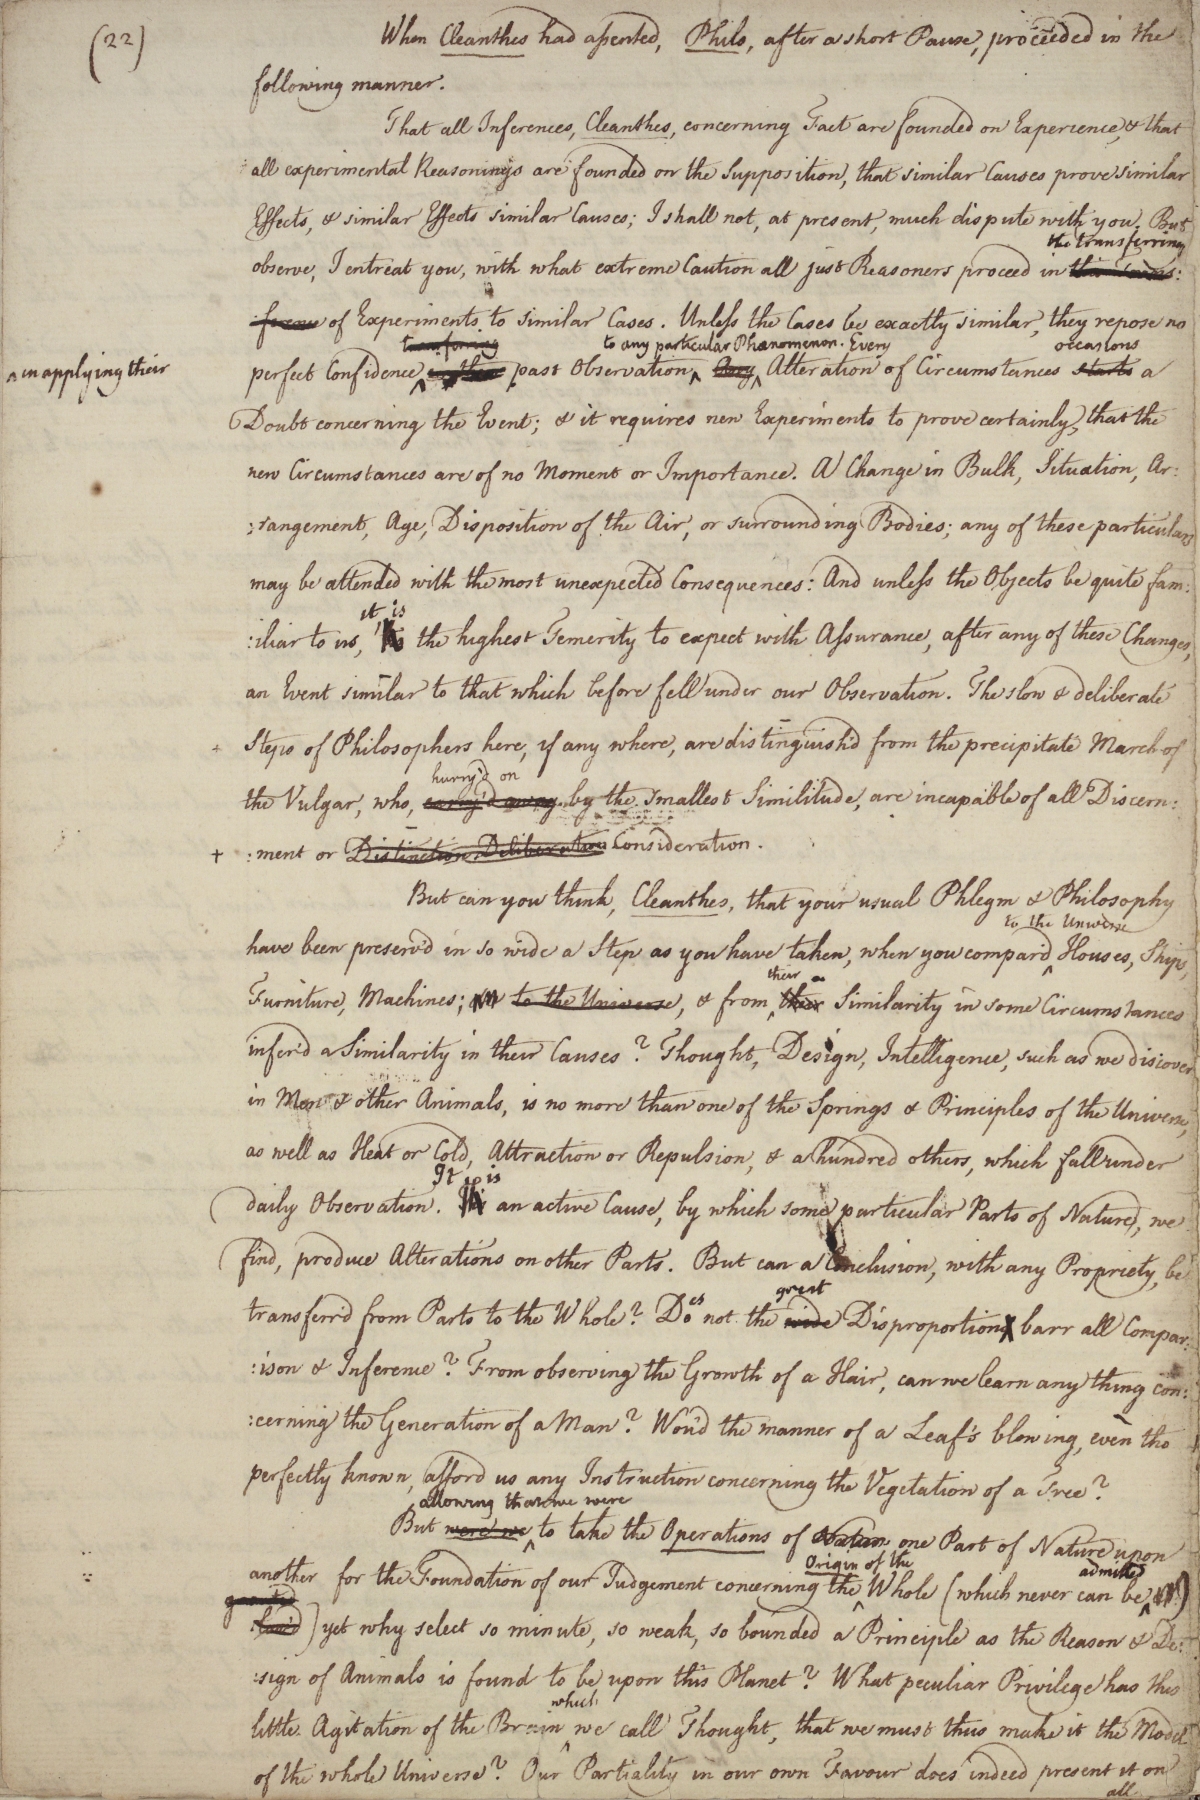 (22)
When Cleanthes had assented, Philo, after a short Pause, proceeded in the
following manner.
That all Inferences, Cleanthes, concerning Fact are founded on Experience, & that
all experimental Reasonings are founded on the Supposition, that similar Causes prove similar
Effects, & similar Effects similar Causes; I shall not, at present, much dispute with you. But
the transferring
observe, I entreat you, with what extreme Caution all just Reasoners proceed in
of Experiments to similar Cases. Unless the Cases be exactly similar, they repose no
transferring to any particular Phænomenon. Every occasions
^ in applying their
perfect Confidence ^ past Observation ^ Any ^ Alteration of Circumstances starts a
Doubt concerning the Event; & it requires new Experiments to prove certainly, that the
new Circumstances are of no Moment or Importance. A Change in Bulk, Situation, Ar:
:rangement, Age, Disposition of the Air, or surrounding Bodies; any of these particulars
may be attended with the most unexpected Consequences: And unless the Objects be quite fam:
it is
:iliar to us, the highest Temerity to expect with Assurance, after any of these Changes,
an Event similar to that which before fell under our Observation. The slow & deliberate
+ Steps of Philosophers here, if any where, are distinguish'd from the precipitate March of
hurry'd on
the Vulgar, who, carry'd away by the smallest Similitude, are incapable of all Discern:
+ :ment or Distinction Deliberation Consideration.
But can you think, Cleanthes, that your usual Phlegm & Philosophy
to the Universe
have been preserv'd in so wide a Step as you have taken, when you compar'd ^ Houses, Ships,
their
Furniture, Machines; to the Universe, & from ^ their Similarity in some Circumstances
infer'd a Similarity in their Causes? Thought, Design, Intelligence, such as we discover
in Men & other Animals, is no more than one of the Springs & Principles of the Universe,
as well as Heat or Cold, Attraction or Repulsion, & a hundred others, which fall under
It is
daily Observation. an active Cause, by which some particular Parts of Nature, we
find, produce Alterations on other Parts. But can a Conclusion, with any Propriety, be
great
transfer'd from Parts to the Whole? Does not the wide Disproportion barr all Compar:
:ison & Inference? From observing the Growth of a Hair, can we learn any thing con:
:cerning the Generation of a Man? Wou'd the manner of a Leaf's blowing, even tho
perfectly known, afford us any Instruction concerning the Vegetation of a Tree?
allowing that we were
But were we ^ to take the Operations of Nature one Part of Nature upon
Origin of the admitted
another for the Foundation of our Judgement concerning the ^ Whole (which never can be ^
) yet why select so minute, so weak, so bounded a Principle as the Reason & De:
:sign of Animals is found to be upon this Planet? What peculiar Privilege has this
which
little Agitation of the Brain ^ we call Thought, that we must thus make it the Model
of the whole Universe? Our Partiality in our own Favour does indeed present it on
all